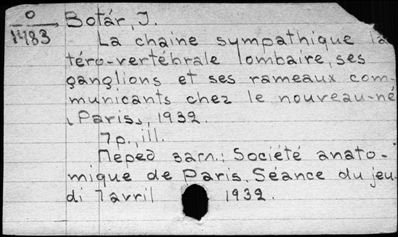 О
1483
Botár, J.
La chaine sympathique la
téro-vertébrale lombaire, ses
ganglions et ses rameaux com-
municants chez le nouveau-né
Paris, 1932.
7p., ill.
Перед загл.: Société anato-
mique de Paris. Séance du jeu
di 7 avril 1932.